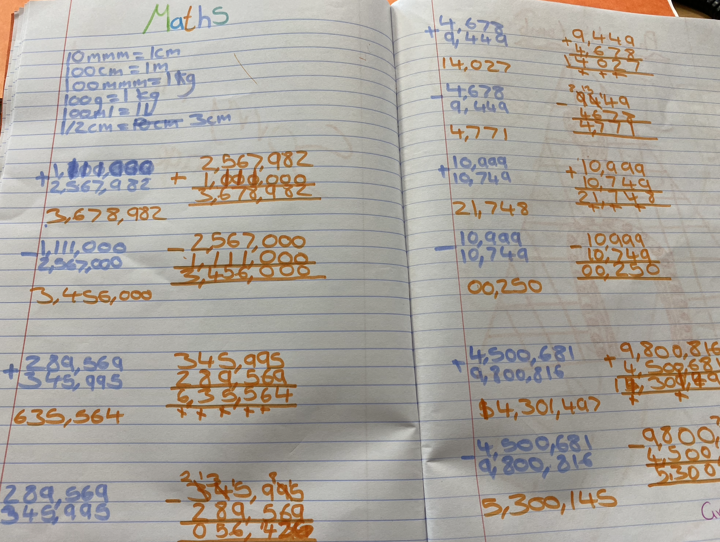 Maths
10mmm = 1cm
100cm = 1m
100mmm = 1kg
100g = 1kg
100ml = 1l
1/2cm = 3cm
+ 1,111,000
2,567,982
3,678,982
+ 2,567,982
1,111,000
3,678,982
- 1,111,000
2,567,000
3,456,000
- 2,567,000
1,111,000
3,456,000
+ 289,569
345,995
635,564
345,995
289,569
635,564
+ + + + +
289,569
345,995
- 345,995
289,569
056,426
+ 4,678
9,449
14,027
+ 9,449
4,678
14,027
+ + +
- 4,678
9,449
4,771
- 9449
4678
4,771
+ 10,999
10,749
21,748
+ 10,999
10,749
21,748
- 10,999
10,749
00,250
- 10,999
10,749
00,250
+ 4,500,681
9,800,816
14,301,497
+ 9,800,816
4,500,681
- 4,500,681
9,800,816
5,300,145
- 9,800,
4,500
5,300